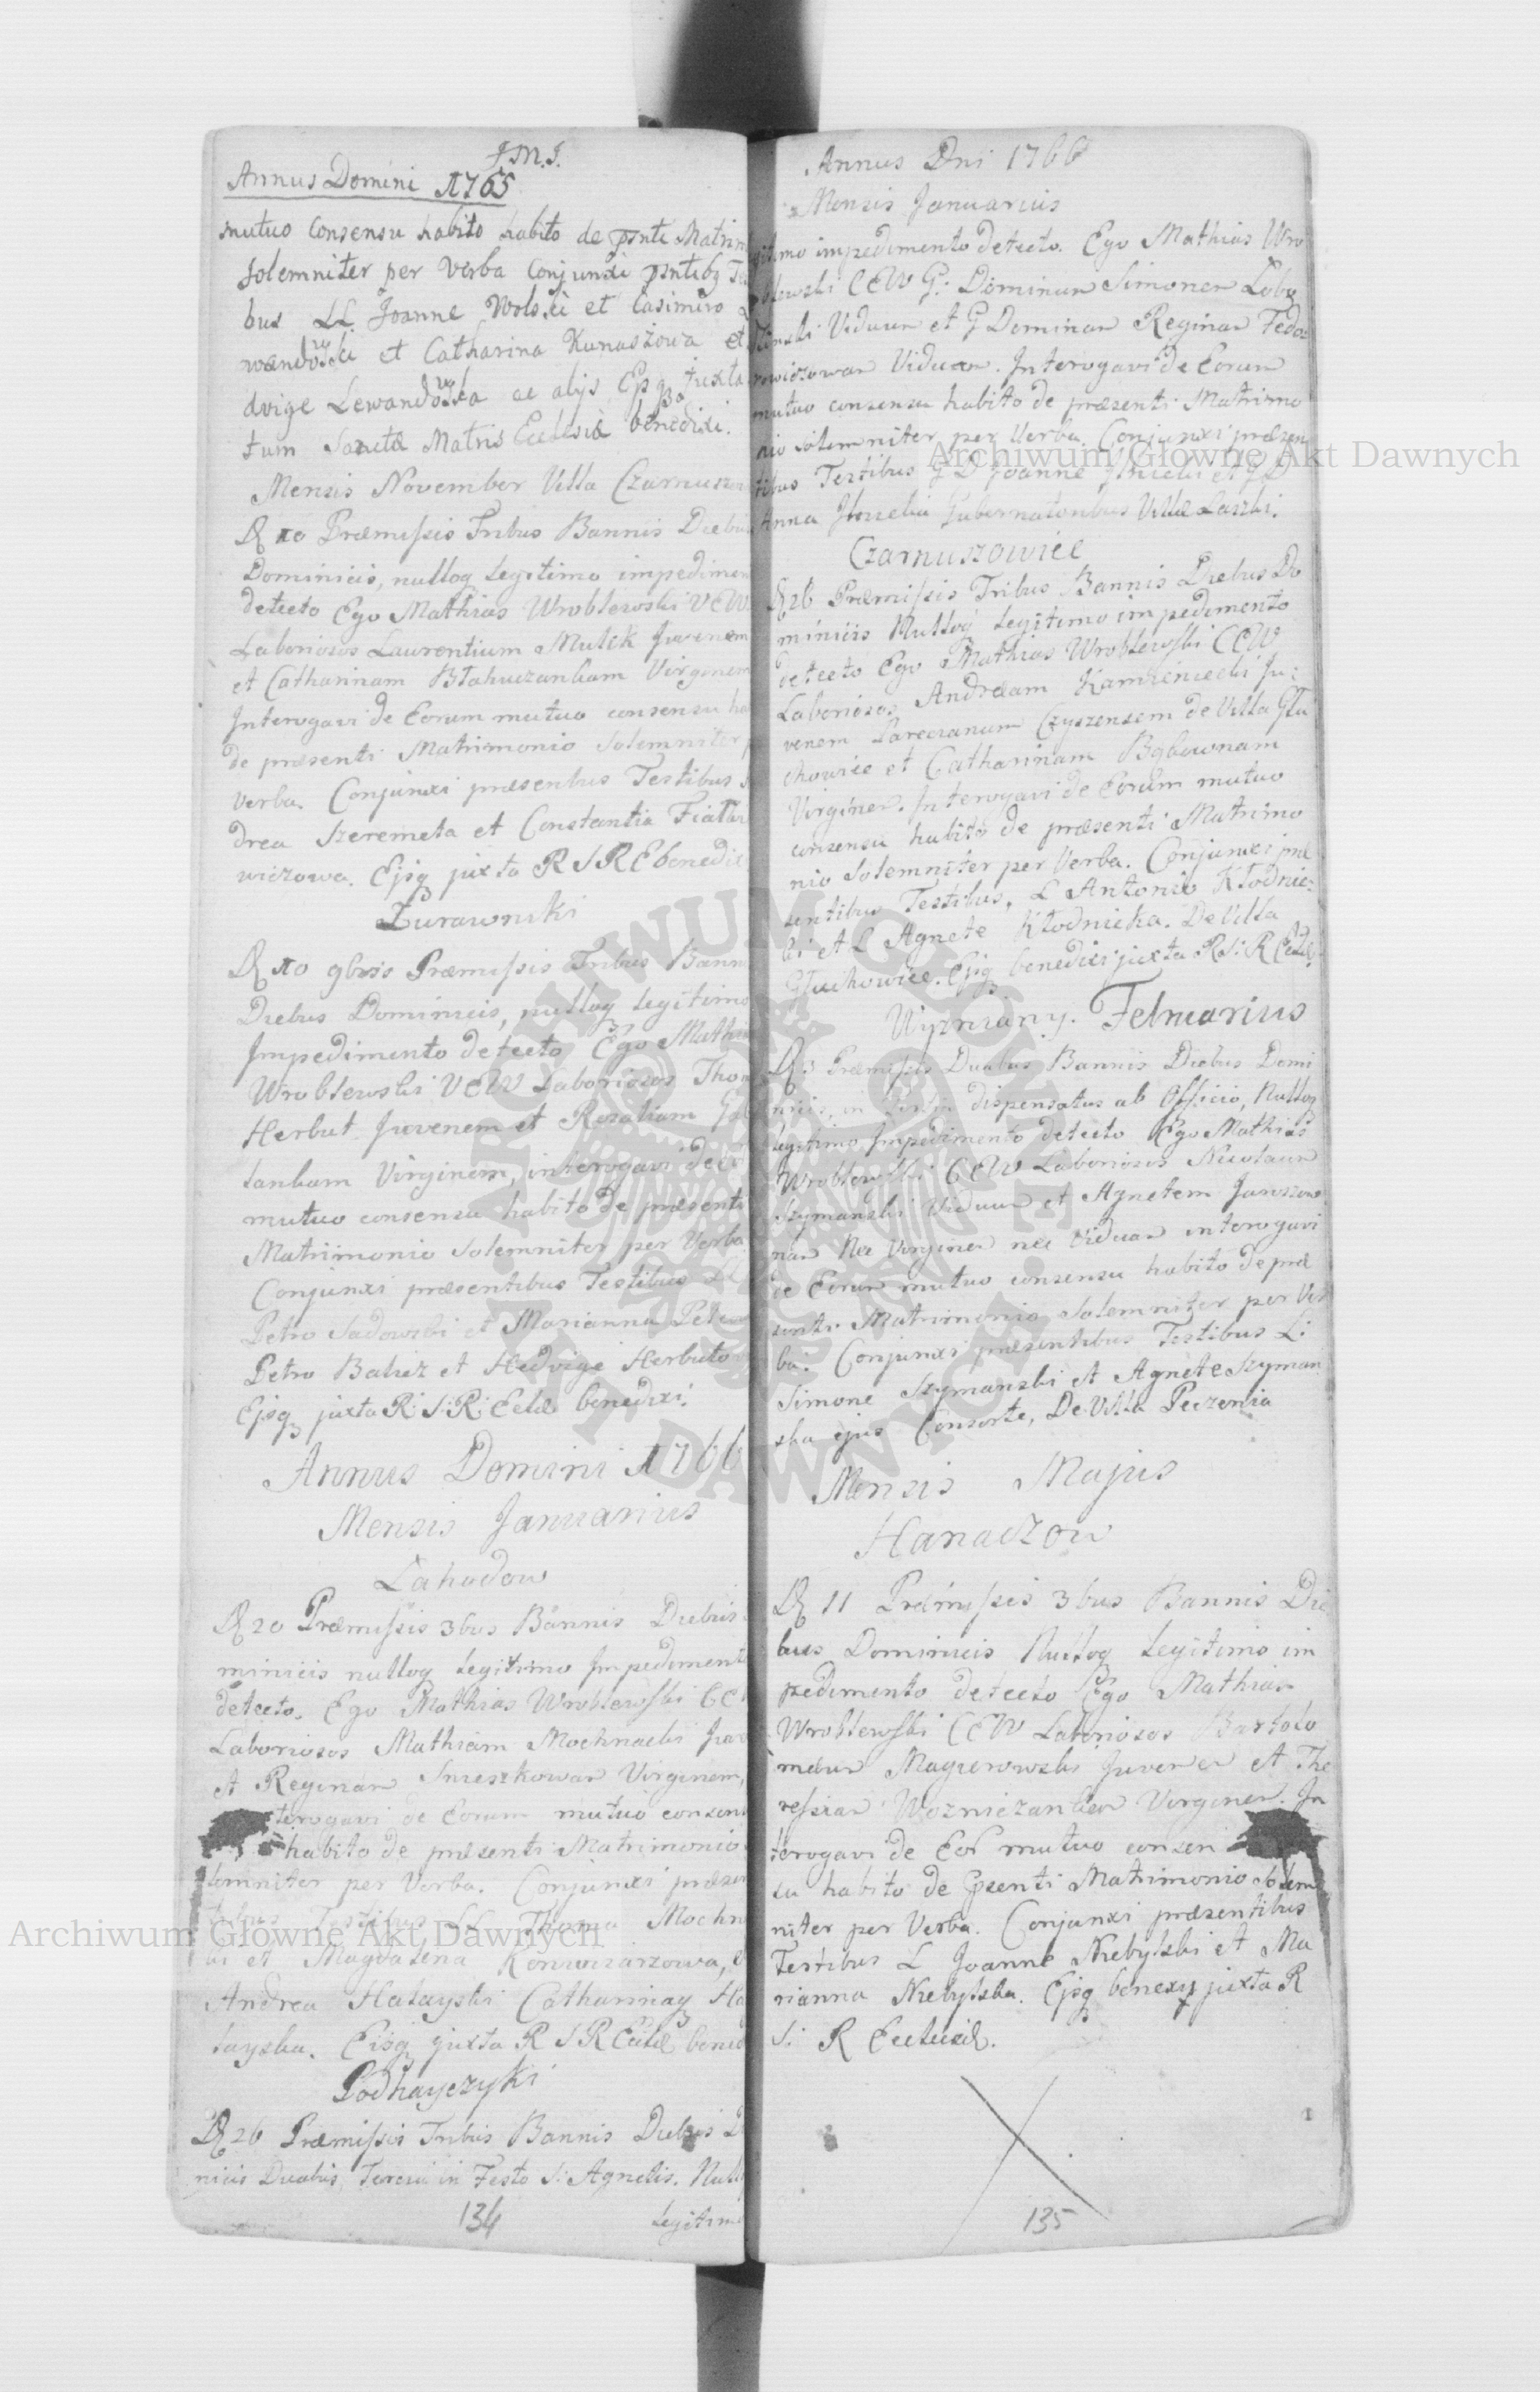 J.M.J.
Annus Domini 1765
mutuo Consensu habito habito de psnti Matrim
solemniter per Verba Conjunxi psntibq Te
bus LL Joanne Wolski et Casimiro
wandowski et Catharina Kunaszowa et
dvige Lewandowska ac alys Ejsq juxta
tum Sanctæ Matris Ecclesiæ benedixi.
Mensis November Villa Czarnuszo
D 10 Præmissis Tribus Bannis Diebus
Dominicis, nulloq Legitimo impedimen
detecto Ego Mathias Wroblewski VCW
Laboriosos Laurentium Mulek Juvenem
et Catharinam Błahuczankam Virginem
Interogavi de Eorum mutuo consensu ha
de præsenti Matrimonio solemniter p
Verba. Conjunxi præsentibus Testibus
drea Szeremeta et Constantia Fiałka
wiczowa. Ejsq juxta R S R E benedix
Zurawniki
D 10 9bris Præmissis Tribus Banni
Diebus Dominicis, nulloq Legitimo
Impedimento detecto Ego Mathia
Wroblewski VCW Laboriosos Thom
Herbut Juvenem et Rosaliam
lankam Virginem, interogavi de
mutuo consensu habito de præsenti
Matrimonio solemniter per Verba
Conjunxi præsentibus Testibus
Petro Sadowski et Marianna
Petro Balicz et Hedvige Herbuto
Ejsq juxta R: S: R: Eclæ benedixi.
Annus Domini 1766
Mensis Januarius
Lahodow
D 20 Præmissis 3bus Bannis Diebus
minicis nulloq Legitimo Impediment
detecto. Ego Mathias Wroblewski CCW
Laboriosos Mathiam Mochnacki Juve
et Reginam Smeszkowan Virginem,
terogavi de Eorum mutuo consen
habito de præsenti Matrimonio
lemniter per Verba. Conjunxi præsen
tibus Testibus LL Thoma Mochna
ki et Magdalena Konwiarzowa, e
Andrea Hałayski Catharinaq Ha
łayska. Ejsq juxta R S R Eccle bened
Podhayczyki
D 26 Præmissis Tribus Bannis Diebus D
nicis Duabus, Tercia in Festo S: Agnetis. Null
134 Legitimo
Annus Dni 1766
Mensis Januarius
itimo impedimento detecto. Ego Mathias Wro
blewski CCW G: Dominum Simonem Lobo
Viduum et G Dominam Reginam Fedo
rowiczowan Viduam. Interogavi de Eorum
mutuo consensu habito de præsenti Matrimo
nio solemniter per Verba. Conjunxi præsen
tibus Testibus G D Joanne et G D
Anna Gubernatoribus Villæ Laszki.
Czarnuszowice
D 26 Præmissis Tribus Bannis Diebus Do
minicis Nulloq Legitimo impedimento
detecto Ego Mathias Wroblewski CCW
Laboriosos Andream Kamieniecki Ju:
venem Parecianum Czyszensem de Villa Głu
chowice et Catharinam Bąbownam
Virginem. Interogavi de Eorum mutuo
consensu habito de præsenti Matrimo
nio solemniter per Verba. Conjunxi præ
sentibus Testibus, L Antonio Kłodnic:
ki et L Agnete Kłodnicka. De Villa
Głuchowice. Ejsq benedixi juxta R S: R Eccle:
Wyzniany. Februarius
D 3 Præmissis Duabus Bannis Diebus Domi
nicis, in dispensatus ab Officio, Nulloq
Legitimo Impedimento detecto Ego Mathias
Wroblewski CCW Laboriosos Nicolaum
Szymanski Viduum et Agnetem Jaroszow
nam Nec Virginem nec Viduam interogavi
de Eorum mutuo consensu habito de præ
senti Matrimonio solemniter per Ver
ba. Conjunxi præsentibus Testibus L:
Simone Szymanski et Agnete Szyman
ska ejus Consorte, De Villa Peczenia
Mensis Majus
Hanaczow
D 11 Præmissis 3bus Bannis Die
bus Dominicis Nulloq Legitimo im
pedimento detecto Ego Mathias
Wroblewski CCW Laboriosos Bartolo
mæum Magierowski Juvenem et The
ressiam Wozniczankam Virginem. In
terogavi de Eor mutuo consen
su habito de Psenti Matrimonio solem
niter per Verba. Conjunxi præsentibus
Testibus L Joanne Niebylski et Ma
rianna Niebylska. Ejsq benexy juxta R
S: R Ecclesiæ.
135
Archiwum Główne Akt Dawnych
Archiwum Główne Akt Dawnych
ARCHIWUM GŁÓWNE AKT DAWNYCH